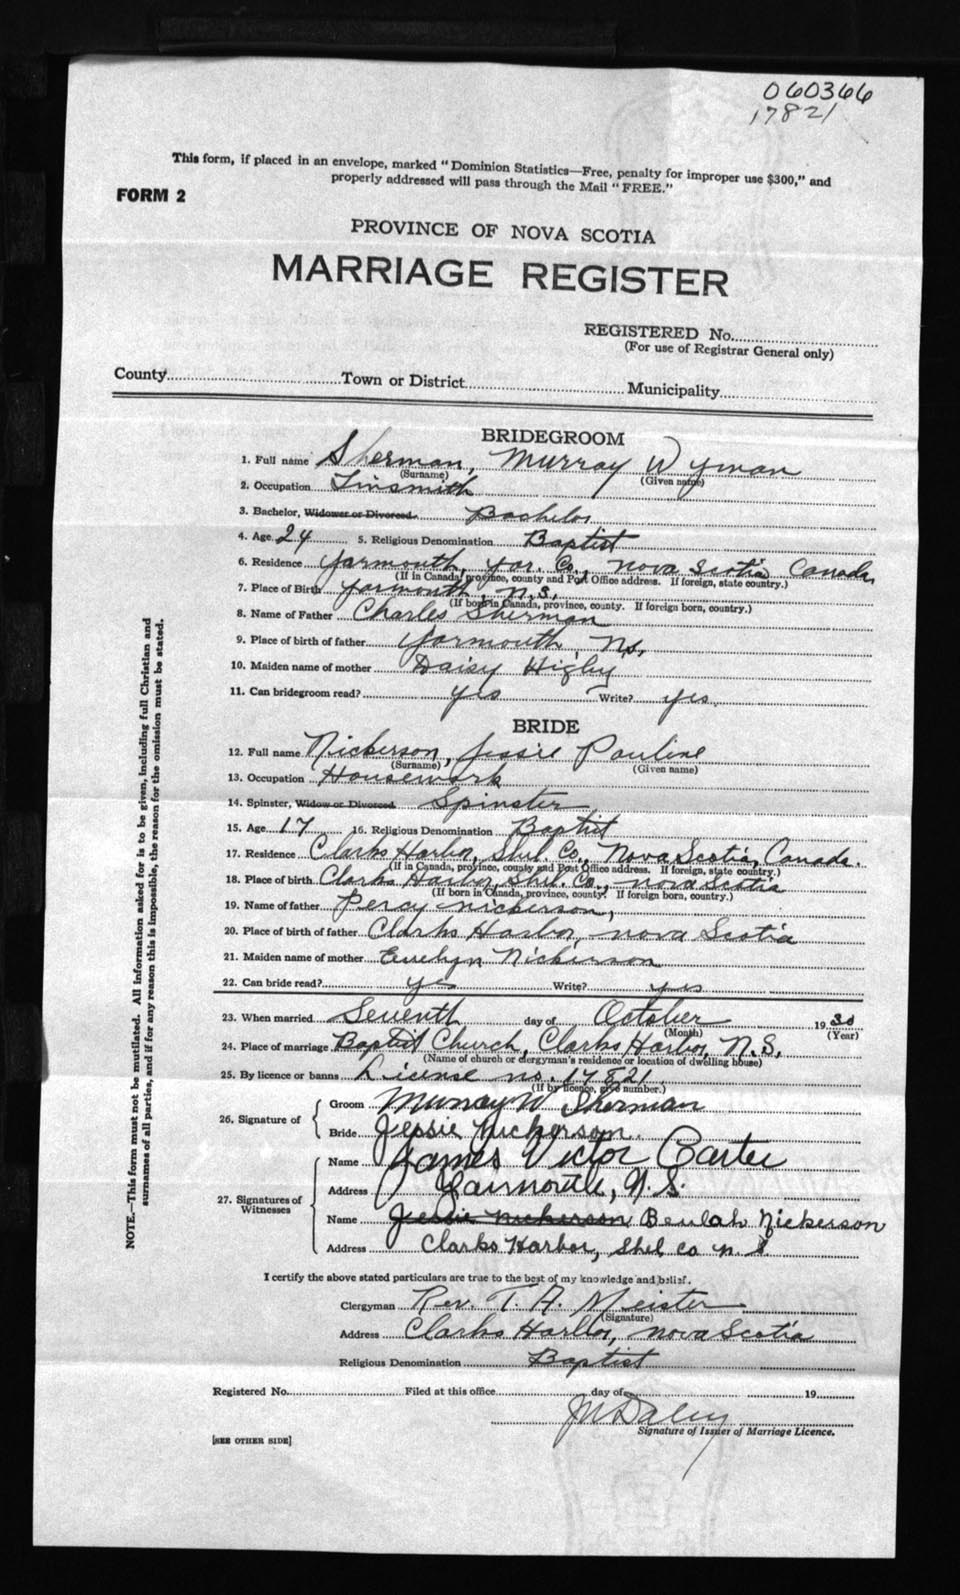 060366
17821
This form, if placed in an envelope, marked "Dominion Statistics—Free, penalty for improper use $300," and
properly addressed will pass through the Mail "FREE."
FORM 2
PROVINCE OF NOVA SCOTIA
MARRIAGE REGISTER
REGISTERED No.
(For use of Registrar General only)
County Town or District Municipality
BRIDEGROOM
1. Full name Sherman, Murray Wyman
(Surname) (Given name)
2. Occupation Tinsmith
3. Bachelor, Widower or Divorced Bachelor
4. Age 24 5. Religious Denomination Baptist
6. Residence Yarmouth, Yar. Co., Nova Scotia Canada,
(If in Canada, province, county and Post Office address. If foreign, state country.)
7. Place of Birth Yarmouth, N.S.
(If born in Canada, province, county. If foreign born, country.)
8. Name of Father Charles Sherman
9. Place of birth of father Yarmouth, Ns.
10. Maiden name of mother Daisy Higby
11. Can bridegroom read? yes Write? yes.
BRIDE
12. Full name Nickerson, Jessie Pauline
(Surname) (Given name)
13. Occupation Housework
14. Spinster, Widow or Divorced Spinster
15. Age 17 16. Religious Denomination Baptist
17. Residence Clarks Harbor, Shel. Co., Nova Scotia, Canada.
(If in Canada, province, county and Post Office address. If foreign, state country.)
18. Place of birth Clarks Harbor, Shel. Co., Nova Scotia
(If born in Canada, province, county. If foreign born, country.)
19. Name of father Percy Nickerson,
20. Place of birth of father Clarks Harbor, Nova Scotia
21. Maiden name of mother Evelyn Nickerson
22. Can bride read? yes Write? yes
23. When married Seventh day of October 1930
(Month) (Year)
24. Place of marriage Baptist Church, Clarks Harbor, N.S.
(Name of church or clergyman's residence or location of dwelling house)
25. By licence or banns License no. 17821
(If by licence, give number.)
26. Signature of Groom Murray W Sherman
Bride Jessie Nickerson.
27. Signatures of Witnesses Name James Victor Carter
Address Yarmouth, N.S.
Name Jessie Nickerson Beulah Nickerson
Address Clarks Harbor, Shel Co N.S
I certify the above stated particulars are true to the best of my knowledge and belief.
Clergyman Rev. T. A. Meister
(Signature)
Address Clarks Harbor, Nova Scotia
Religious Denomination Baptist
Registered No. Filed at this office day of 19
Signature of Issuer of Marriage Licence.
[SEE OTHER SIDE]
NOTE.—This form must not be mutilated. All information asked for is to be given, including full Christian and
surnames of all parties, and if for any reason this is impossible, the reason for the omission must be stated.